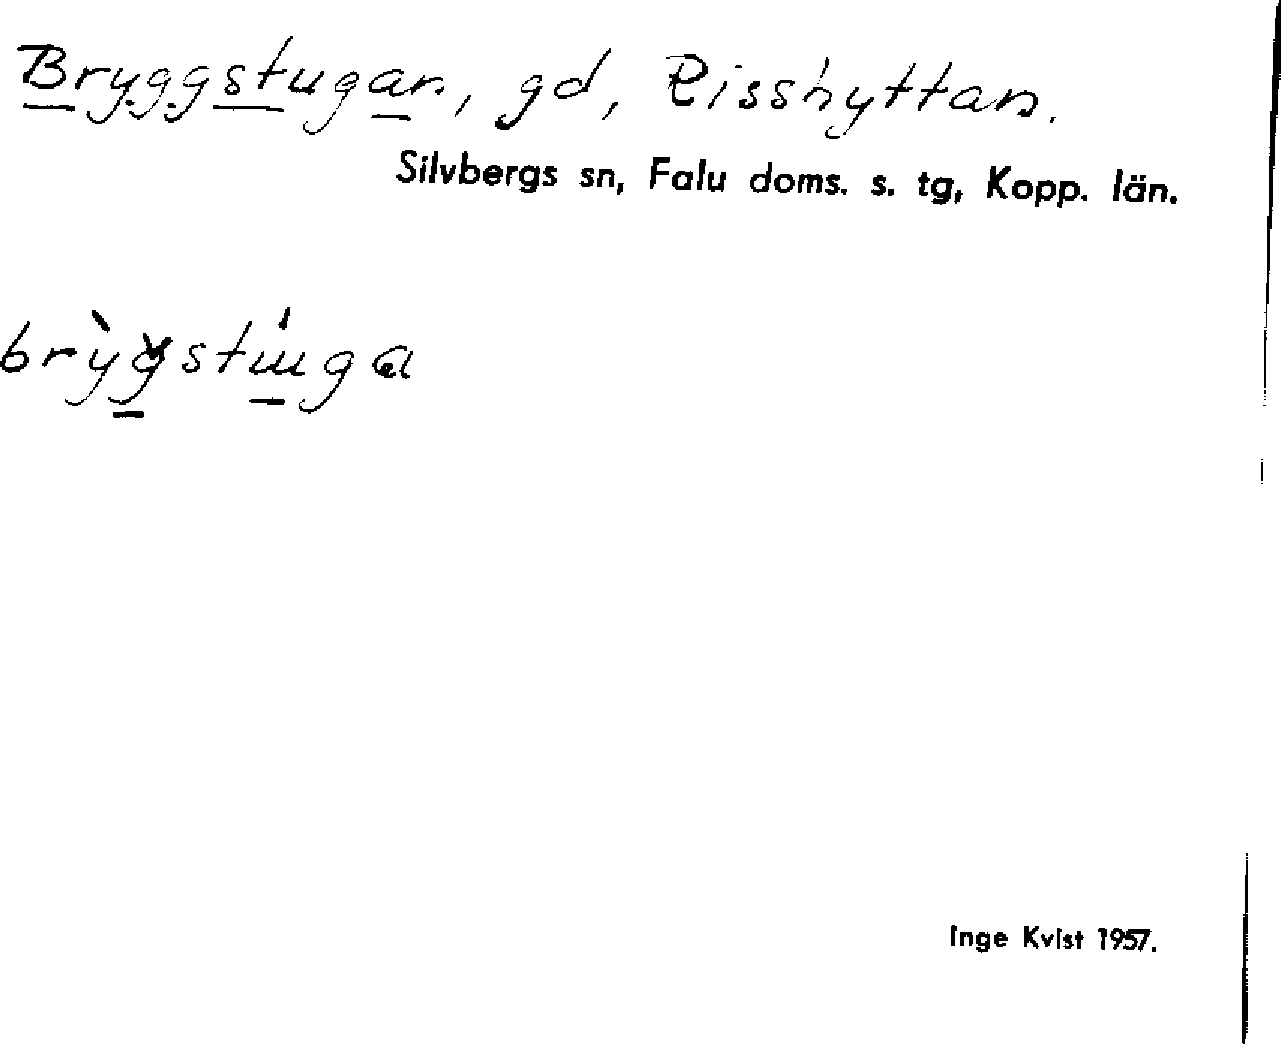 Bryggstugan, gd, Risshyttan.
Silvbergs sn, Falu doms. s. tg, Kopp. län.
Inge Kvist 1957.